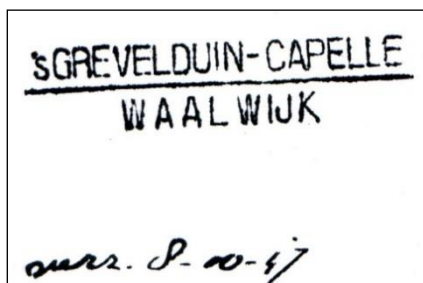 'sGREVELDUIN-CAPELLE
WAALWIJK
8-10-47